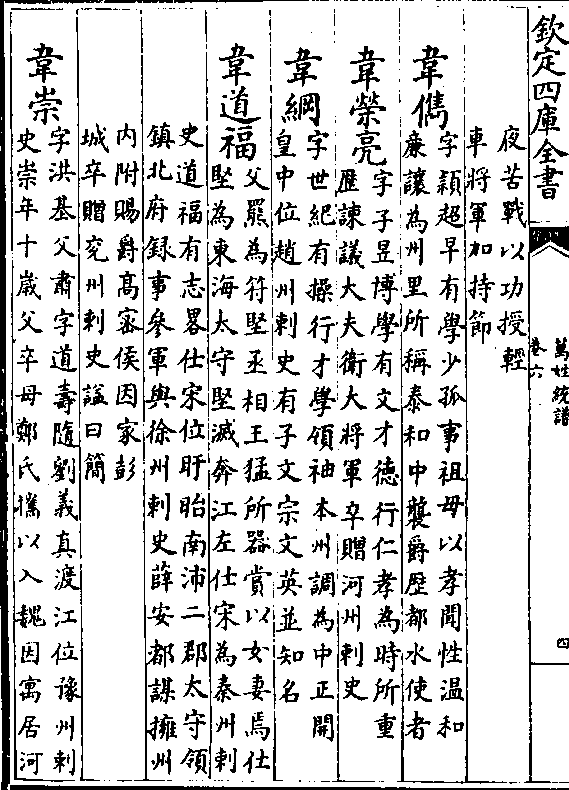 欽定四庫全書
萬姓統譜
卷六
四
夜苦戰以功授輕
車將軍加持節
韋儁
字穎超早有學少孤事祖母以孝聞性温和
廉讓為州里所稱泰和中襲爵歴都水使者
韋榮亮
字子昱博學有文才德行仁孝為時所重
歴諫議大夫衛大將軍卒贈河州刺史
韋綱
字世紀有操行才學領袖本州調為中正開
皇中位趙州刺史有子文宗文英並知名
韋道福
父羆為符堅丞相王猛所器賞以女妻焉仕
堅為東海太守堅滅奔江左仕宋為秦州刺
史道福有志畧仕宋位盱眙南沛二郡太守領
鎮北府録事參軍與徐州刺史薛安都謀擁州
內附賜爵高密侯因家彭
城卒贈兖州刺史謚曰簡
韋崇
字洪基父肅字道壽隨劉義真渡江位豫州刺
史崇年十歲父卒母鄭氏攜以入魏因寓居河